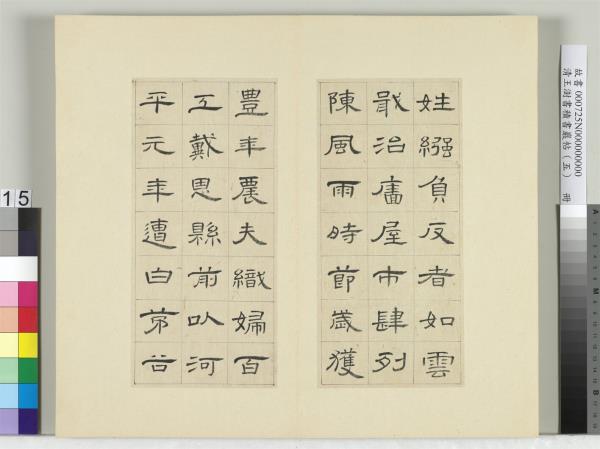 姓繦負反者如雲
戢治廧屋市肆列
陳風雨時節歲獲
豊年農夫織婦百
工戴恩縣前以河
平元年遭白茅谷
故書 000725N00000000
清王澍書積書巖帖(五) 冊
15
A
M
B